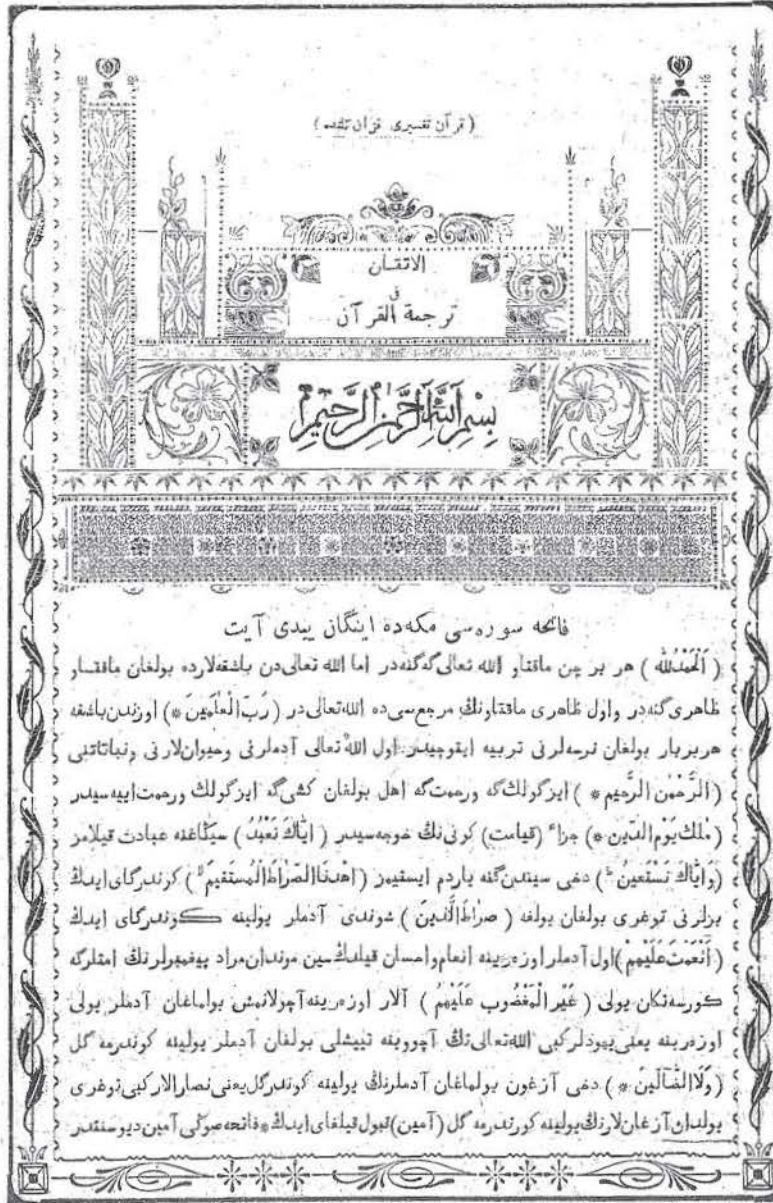 (قرآن تفسیری قزان تلنده)
الاتقان
فی
ترجمة القرآن
بِسْمِ اللّٰهِ الرَّحْمٰنِ الرَّحِیْمِ
فاتحه سوره‌سی مکه‌ده اینگان ییدی آیت
(اَلْحَمْدُ لِلّٰهِ) هر بر چن ماقتاو الله تعالی‌گه گنه‌در اما الله تعالی‌دن باشقه‌لارده بولغان ماقتاو
ظاهری گنه‌در واول ظاهری ماقتاونڭ مرجع‌سی ده الله تعالی‌در (رَبِّ الْعٰالَمِينَ *) اوزندن باشقه
هربربار بولغان نرسه‌لرنی تربیه ایتوچیدر اول الله تعالی آدملرنی وحیوان‌لارنی ونباتاتنی
(اَلرَّحْمٰنِ الرَّحِيمِ *) ایزگولك‌گه ورحمت‌گه اهل بولغان کشی‌گه ایزگولك ورحمت ایيه‌سیدر
(مٰلِكِ يَوْمِ الدِّينِ *) جزاء (قیامت) کونی‌نڭ خوجه‌سیدر (اِيّٰاكَ نَعْبُدُ) سیڭاغنه عبادت قیلامز
(وَاِيّٰاكَ نَسْتَعِينُ ط) دخی سیندن‌گنه یاردم ایستیمز (اِهْدِنَا الصِّرٰاطَ الْمُسْتَقِيمَ لا) کوندرگای ایدڭ
بزلرنی توغری بولغان یولغه (صِرٰاطَ الَّذِينَ) شوندی آدملر یولینه کوندرگای ایدڭ
(اَنْعَمْتَ عَلَيْهِمْ) اول آدملر اوزه‌رینه انعام واحسان قیلدڭ سین موندان مراد پیغمبرلرنڭ امتلرگه
کورسه‌تکان یولی (غَيْرِ الْمَغْضُوبِ عَلَيْهِمْ) آلار اوزه‌رینه آچولانمش بولماغان آدملر یولی
اوزه‌رینه یعنی یهودلر کبی الله تعالی‌نڭ آچووینه تییشلی بولغان آدملر یولینه کوندرمه گل
(وَلَا الضّٰٓالِّينَ *) دخی آزغون بولماغان آدملرنڭ یولینه کوندرگل یعنی نصارالار کبی توغری
یولدان آزغان‌لارنڭ یولینه کوندرمه گل (آمین) قبول قیلغای ایدڭ * فاتحه صوڭی آمین دیو سنتدر